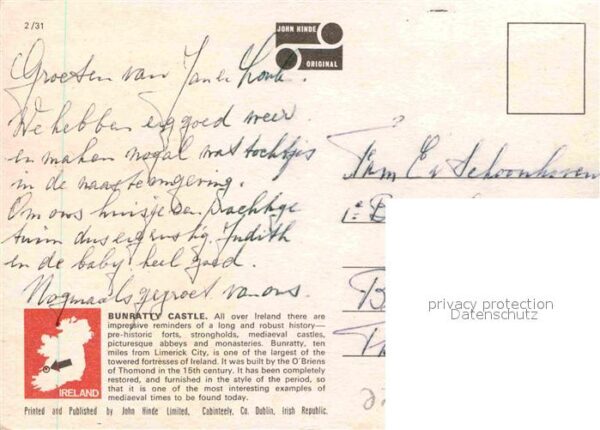 2/31
JOHN HINDE
ORIGINAL
Groeten van Jan en
We hebben erg goed weer
en maken nogal wat tochtjes
in de naaste omgeving.
Om ons huisje een prachtige
tuin dus erg rustig. Judith
en de baby heel goed.
Nogmaals gegroet van ons.
Fam E v Schoonhoven
1e
privacy protection
Datenschutz
BUNRATTY CASTLE. All over Ireland there are
impressive reminders of a long and robust history—
pre-historic forts, strongholds, mediaeval castles,
picturesque abbeys and monasteries. Bunratty, ten
miles from Limerick City, is one of the largest of the
towered fortresses of Ireland. It was built by the O'Briens
of Thomond in the 15th century. It has been completely
restored, and furnished in the style of the period, so
that it is one of the most interesting examples of
mediaeval times to be found today.
IRELAND
Printed and Published by John Hinde Limited, Cabinteely, Co. Dublin, Irish Republic.